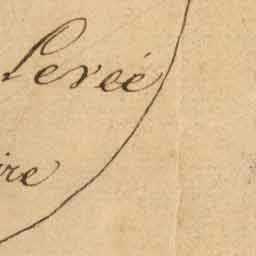 Levée
ire